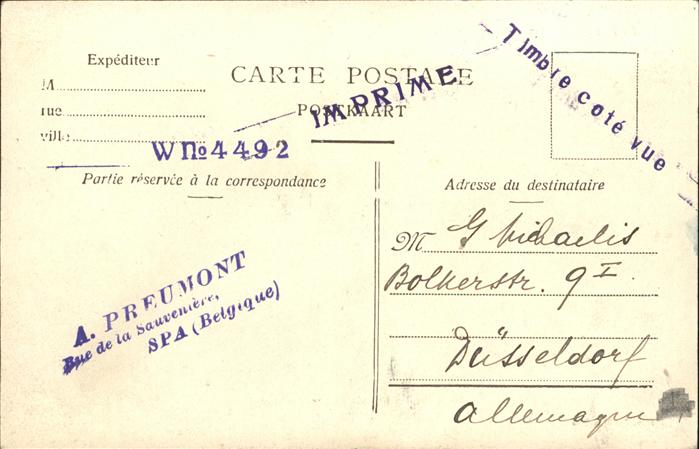 Expéditeur
M
rue
ville
CARTE POSTALE
POSTKAART
IMPRIMÉ
Timbre coté vue
WNo4492
Partie réservée à la correspondance
Adresse du destinataire
A. PREUMONT
Rue de la Sauvenière,
SPA (Belgique)
M G Michaelis
Bolkerstr. 9 I
Düsseldorf
Allemagne